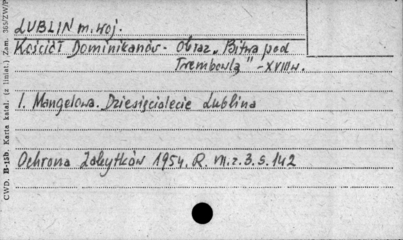 LUBLIN m. woj.
Kościół Dominikanów - Obraz „Bitwa pod
Trembowlą" - XVIII w.
I. Mangelowa. Dziesięciolecie Lublina
Ochrona Zabytków 1954. R. VII. z. 3. s. 142
CWD. B-15b. Karta katal. (z liniat.) Zam.